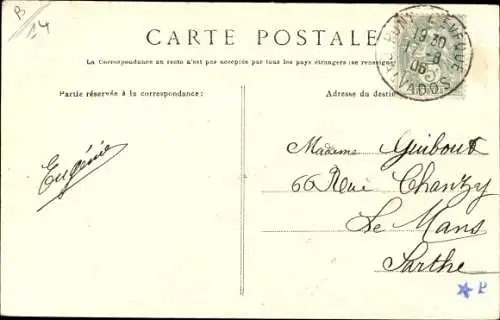 B
14
CARTE POSTALE
La Correspondance au recto n'est pas acceptée par tous les pays étrangers (se renseigner
Partie réservée à la correspondance:
Adresse du destin
19 30
06
5
Eugénie
Madame Guibout
66 Rue Chanzy
Le Mans
Sarthe